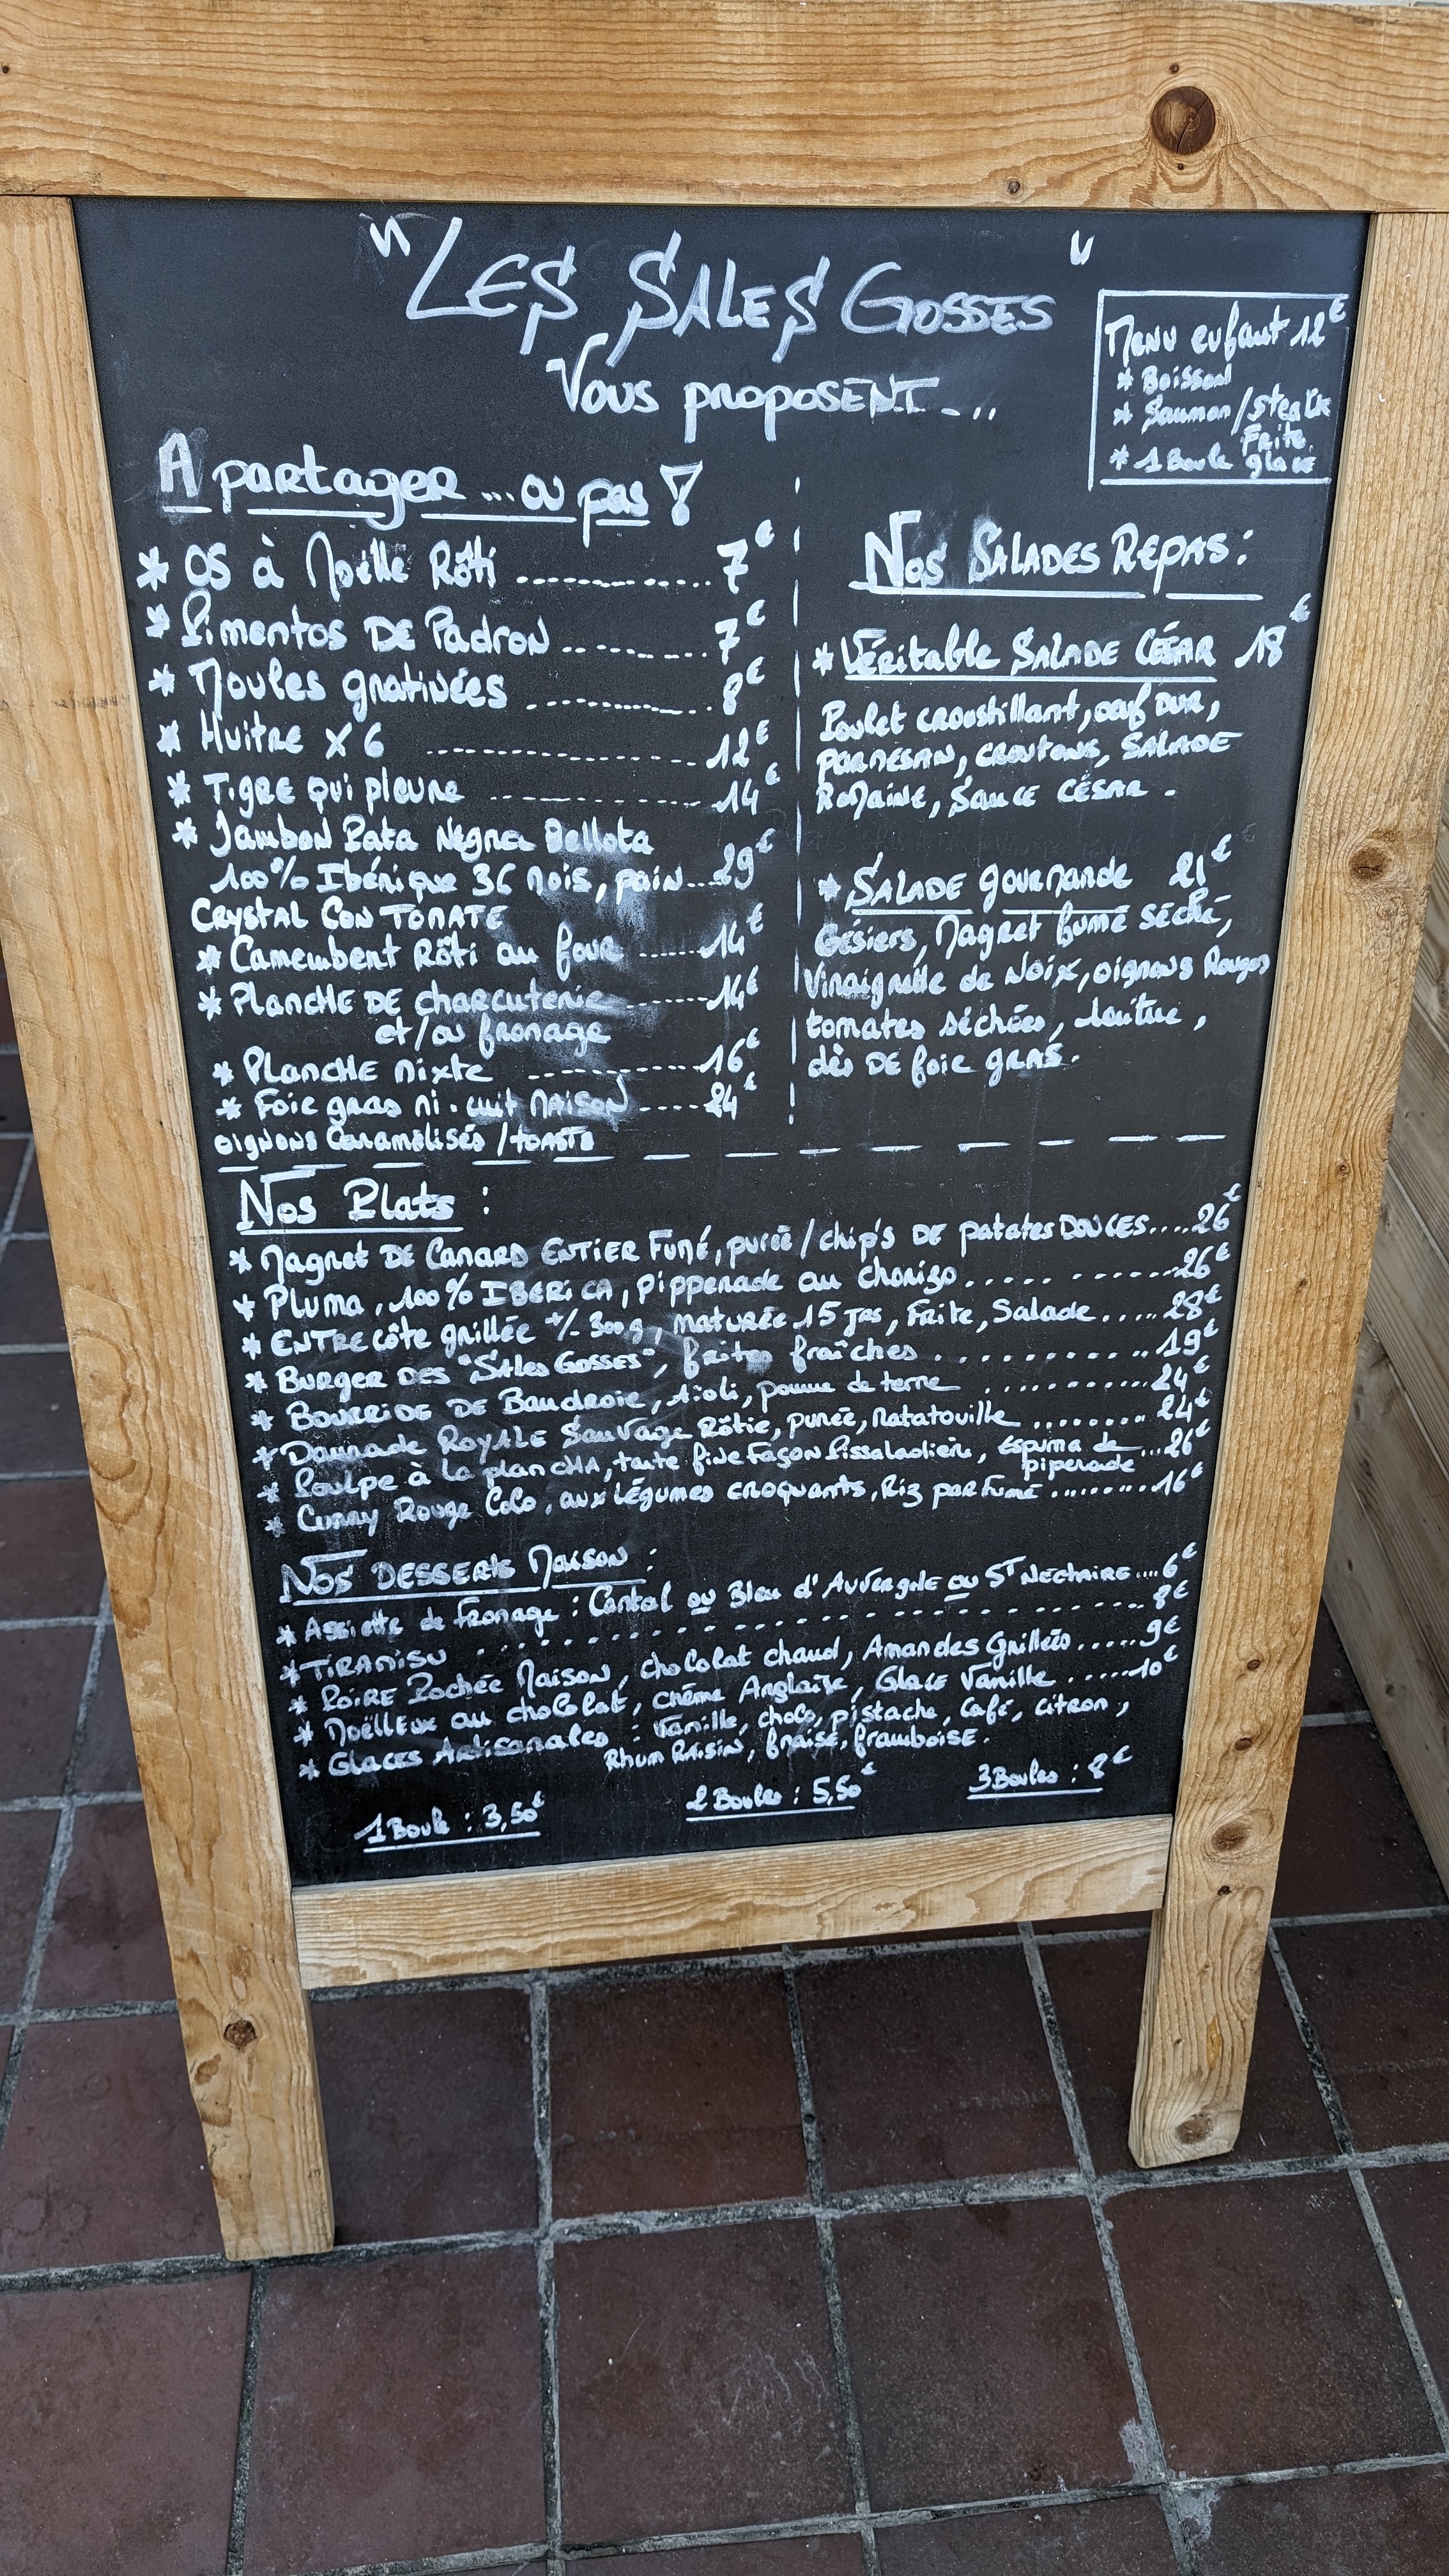 "LES SALES GOSSES"
Vous proposent...
Menu enfant 12€
* Boisson
* Saumon/steack
Frite
* 1 Boule glace
A partager ... ou pas !
* OS à Moëlle Rôti ........ 7€
* Pimentos DE Padron ........ 7€
* Moules gratinées ........ 8€
* Huitre x 6 ........ 12€
* Tigre qui pleure ........ 14€
* Jambon Pata Negra Bellota
100% Ibérique 36 mois, pain...29€
Crystal Con TOMATE
* Camembert Rôti au four ......14€
* PlancHE DE charcuterie ........14€
et/ou fromage
* PlancHE mixte ........16€
* Foie gras mi-cuit MAISON ....24€
oignons Caramélisés /toasts
Nos SALADES REPAS :
* Véritable SALADE CÉSAR 18€
Poulet croustillant, oeuf DUR,
PARMESAN, CROUTONS, SALADE
ROMAINE, SAUCE CÉSAR.
* SALADE gourmande 21€
Gésiers, Magret fumé séché,
Vinaigrette de Noix, oignons Rouges
tomates séchées, laitue,
dès DE foie gras.
Nos Plats :
* Magret DE Canard ENTIER Fumé, purée/chip's DE patates DOUCES....26€
* Pluma, 100% IBERICA, pipperade au chorizo ........26€
* ENTRECôte grillée +/- 300g, maturée 15 jrs, Frite, Salade.....28€
* BURGER DES "Sales Gosses", frites fraîches ........19€
* BOURRIDE DE Baudroie, Aïoli, pomme de terre ........24€
* Daurade ROYALE Sauvage Rôtie, purée, Ratatouille ........24€
* Poulpe à la plancHA, tarte fine Façon Pissaladière, Espuma de ...26€
piperade
* Curry Rouge Coco, aux légumes croquants, Riz parfumé ........16€
Nos DESSERTS Maison :
* Assiette de Fromage : Cantal ou Bleu d'AUVERGNE ou ST NECTAIRE....6€
* TIRAMISU ........8€
* POIRE Pochée Maison, chocolat chaud, Amandes Grillées.....9€
* Moëlleux au chocolat, crème Anglaise, Glace Vanille ......10€
* Glaces Artisanales : Vanille, choco, pistache, Café, citron,
Rhum Raisin, fraise, framboise.
1 Boule : 3,50€ 2 Boules : 5,50€ 3 Boules : 8€